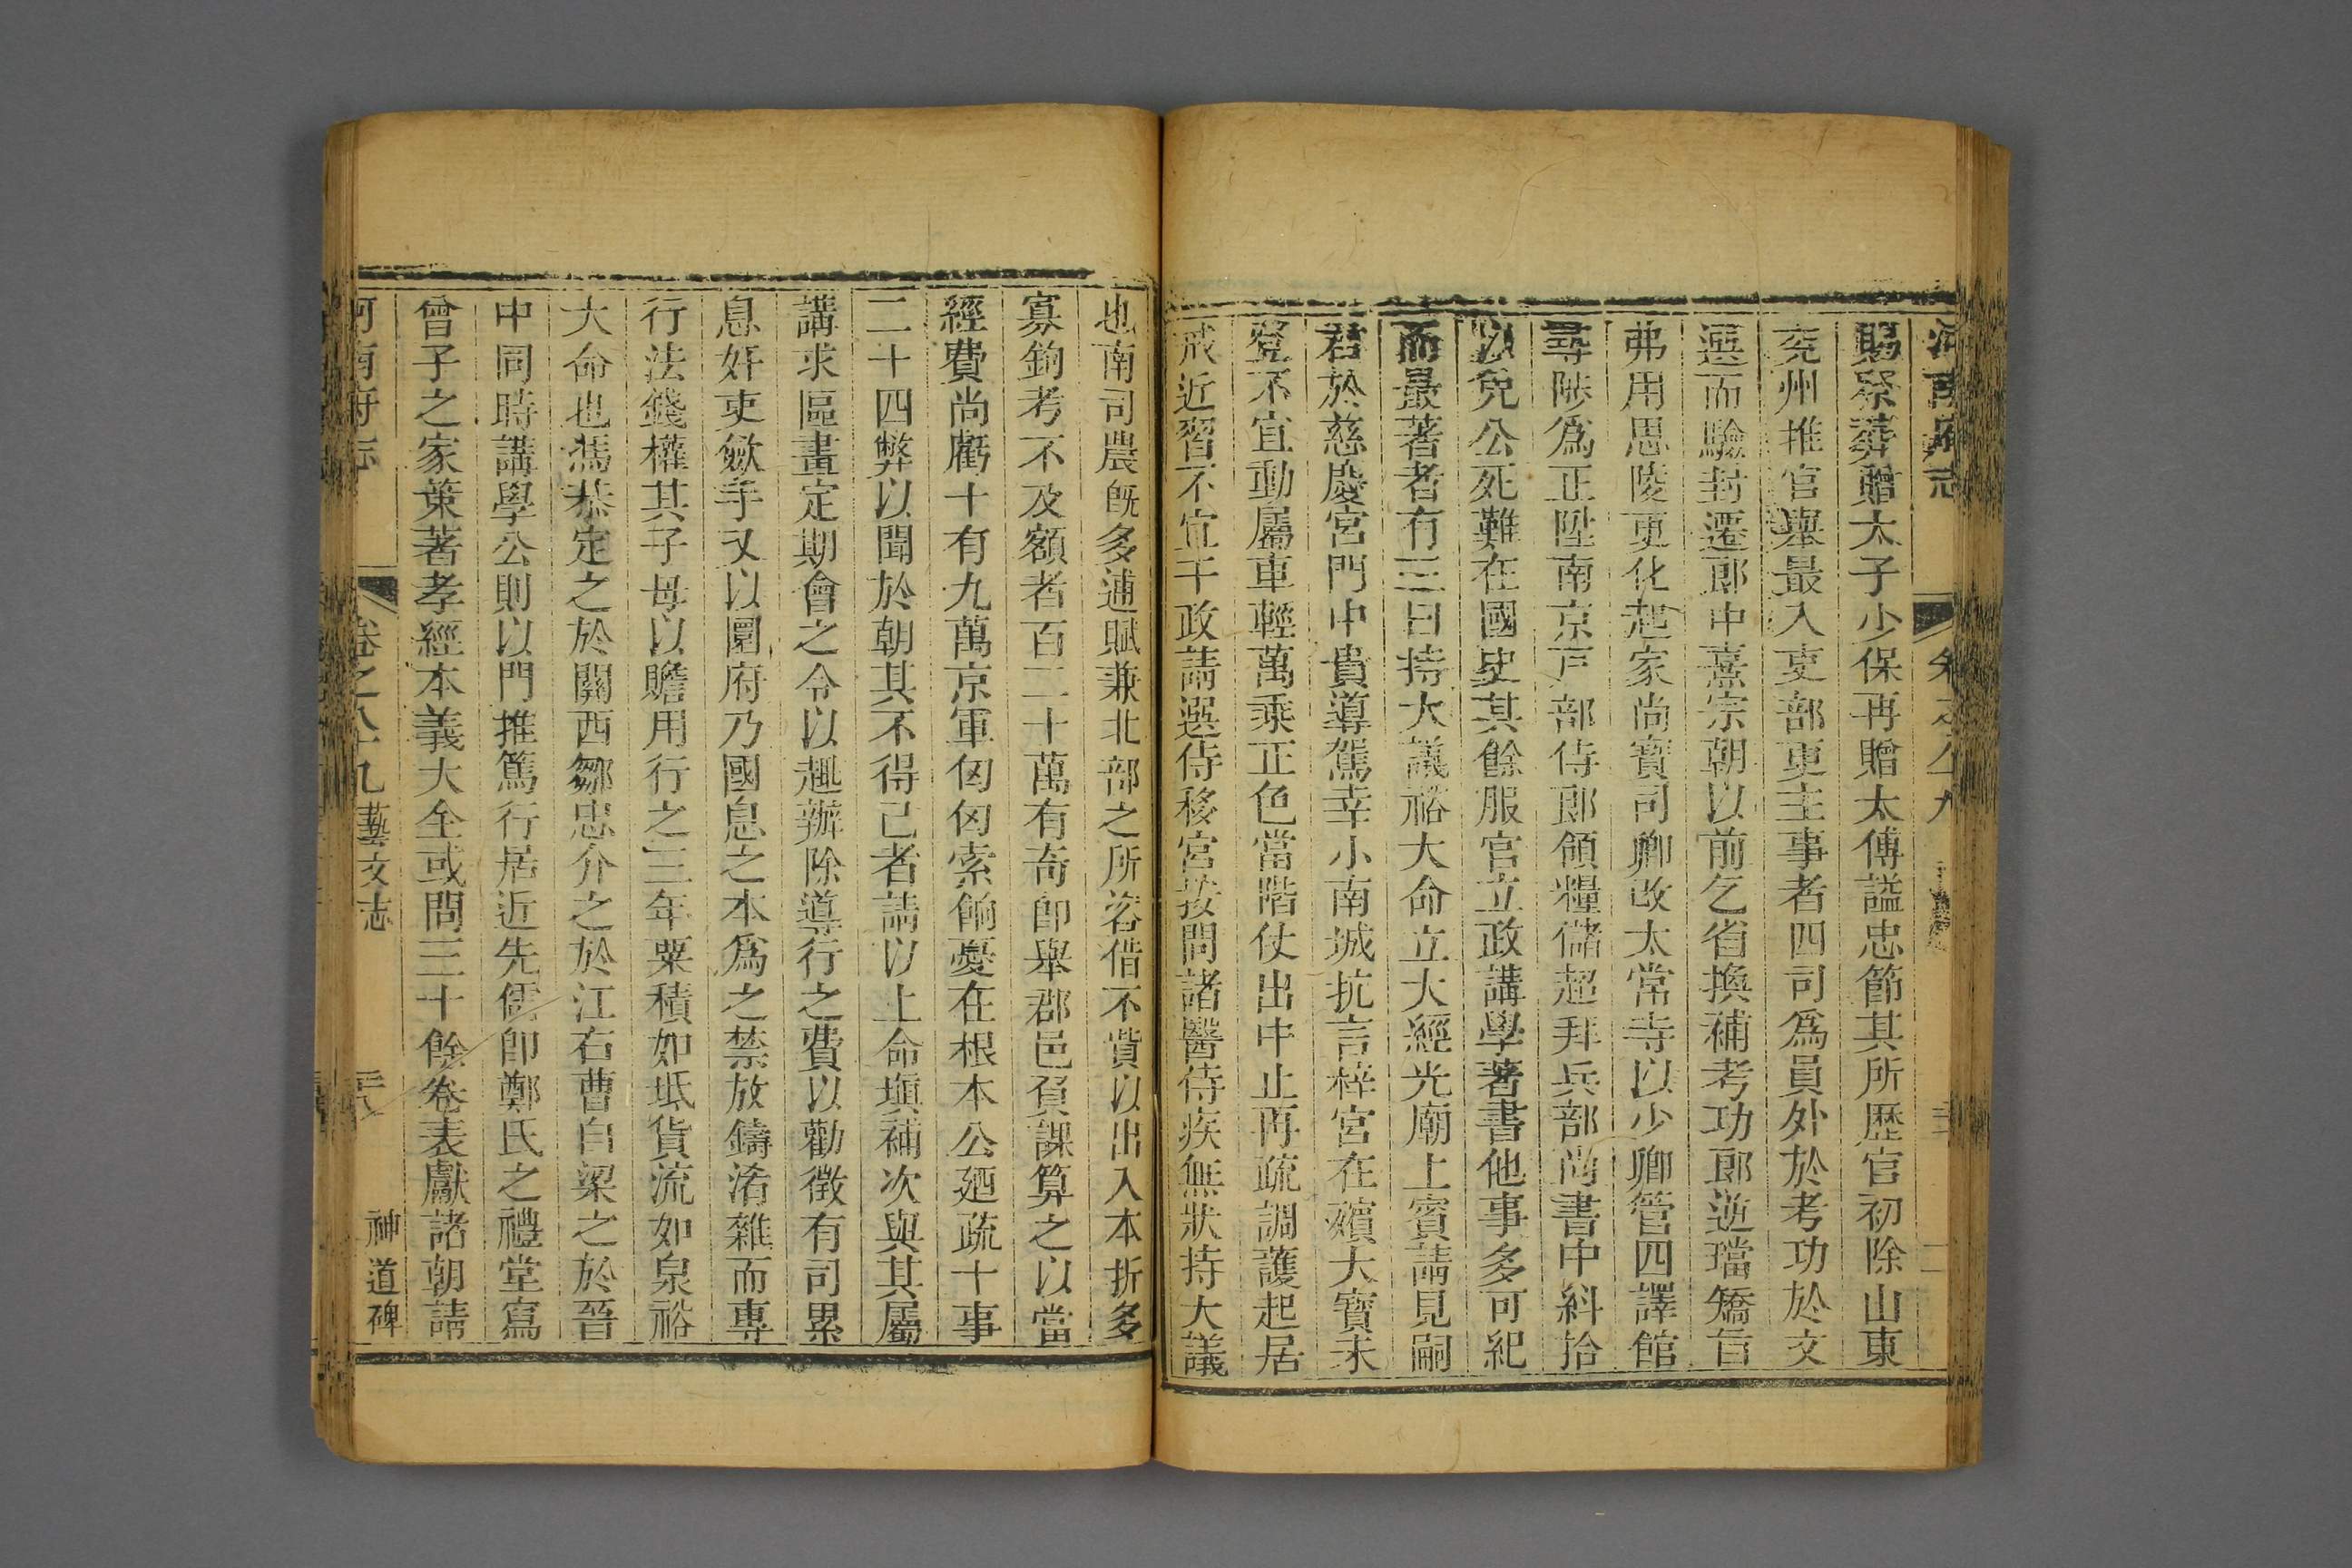 河南府志 卷之八十九
賜祭葬贈太子少保再贈太傅謚忠節其所歷官初除山東
兖州推官舉最入吏部更主事者四司爲員外於考功於文
選而驗封遷郎中熹宗朝以前乞省換補考功郎逆璫矯旨
弗用思陵更化起家尚寶司卿改太常寺以少卿管四譯館
尋陟爲正陞南京戸部侍郎領糧儲超拜兵部尚書中糾拾
以免公死難在國史其餘服官立政講學著書他事多可紀
而最著者有三曰持大議裕大命立大經光廟上賓請見嗣
君於慈慶宮門中貴導駕幸小南城抗言梓宮在殯大寶未
登不宜動屬車輕萬乘正色當階仗出中止再疏調護起居
戒近習不宜干政請選侍移宮按問諸醫侍疾無狀持大議
也南司農旣多逋賦兼北部之所咨借不貲以出入本折多
寡鉤考不及額者百二十萬有奇卽舉郡邑負課算之以當
經費尚虧十有九萬京軍匈匈索餉憂在根本公廼疏十事
二十四弊以聞於朝其不得已者請以上命塡補次與其屬
講求區畫定期會之令以趣辦除導行之費以勸徵有司累
息奸吏斂手又以圜府乃國息之本爲之禁放鑄淆雜而專
行法錢權其子母以贍用行之三年粟積如坻貨流如泉裕
大命也馮恭定之於關西鄒忠介之於江右曹自梁之於晉
中同時講學公則以門推篤行居近先儒卽鄭氏之禮堂寫
曾子之家策著孝經本義大全或問三十餘卷表獻諸朝請
河南府志 卷之八十九 藝文志 神道碑